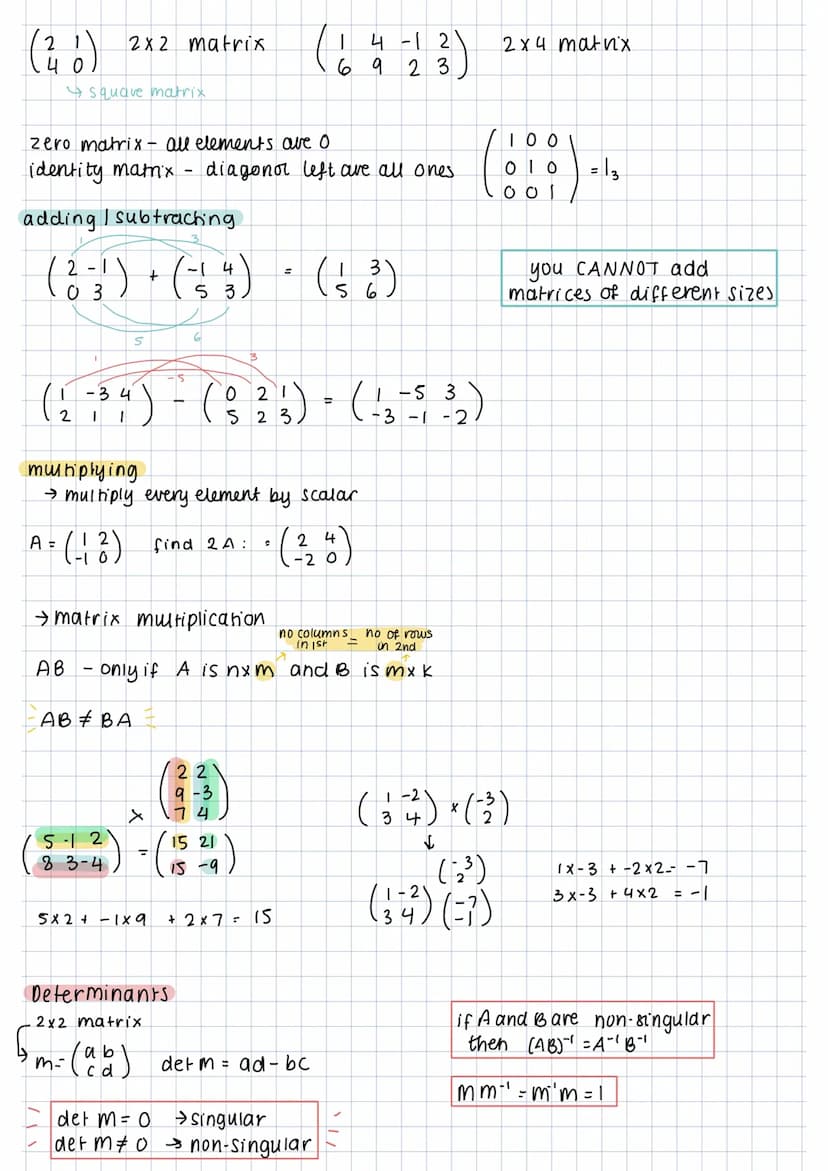 (2 1
4 0) 2x2 matrix (1 4 -1 2
6 9 2 3) 2x4 matrix
↳ square matrix
zero matrix - all elements are 0
identity matrix - diagonal left are all ones (1 0 0
0 1 0
0 0 1) = I₃
adding / subtracting
1 3
(2 -1
0 3) + (-1 4
5 3) = (1 3
5 6)
5 6
you CANNOT add
matrices of different sizes
1 -5 3
(1 -3 4
2 1 1) - (0 2 1
5 2 3) = (1 -5 3
-3 -1 -2)
multiplying
→ multiply every element by scalar
A = (1 2
-1 0) find 2A: = (2 4
-2 0)
→ matrix multiplication
no columns in 1st = no of rows in 2nd
AB - only if A is nxm and B is mxk
AB ≠ BA
(2 2
9 -3
7 4)
x
(5 -1 2
8 3 -4) = (15 21
15 -9)
5x2 + -1x9 + 2x7 = 15
(1 -2
3 4) x (-3
2)
↓
(-3
2)
(1 -2
3 4) (-7
-1)
1x-3 + -2x2 = -7
3x-3 + 4x2 = -1
Determinants
2x2 matrix
m = (a b
c d) det m = ad - bc
det m = 0 → singular
det m ≠ 0 → non-singular
if A and B are non-singular
then (AB)⁻¹ = A⁻¹ B⁻¹
m m⁻¹ = m⁻¹m = I